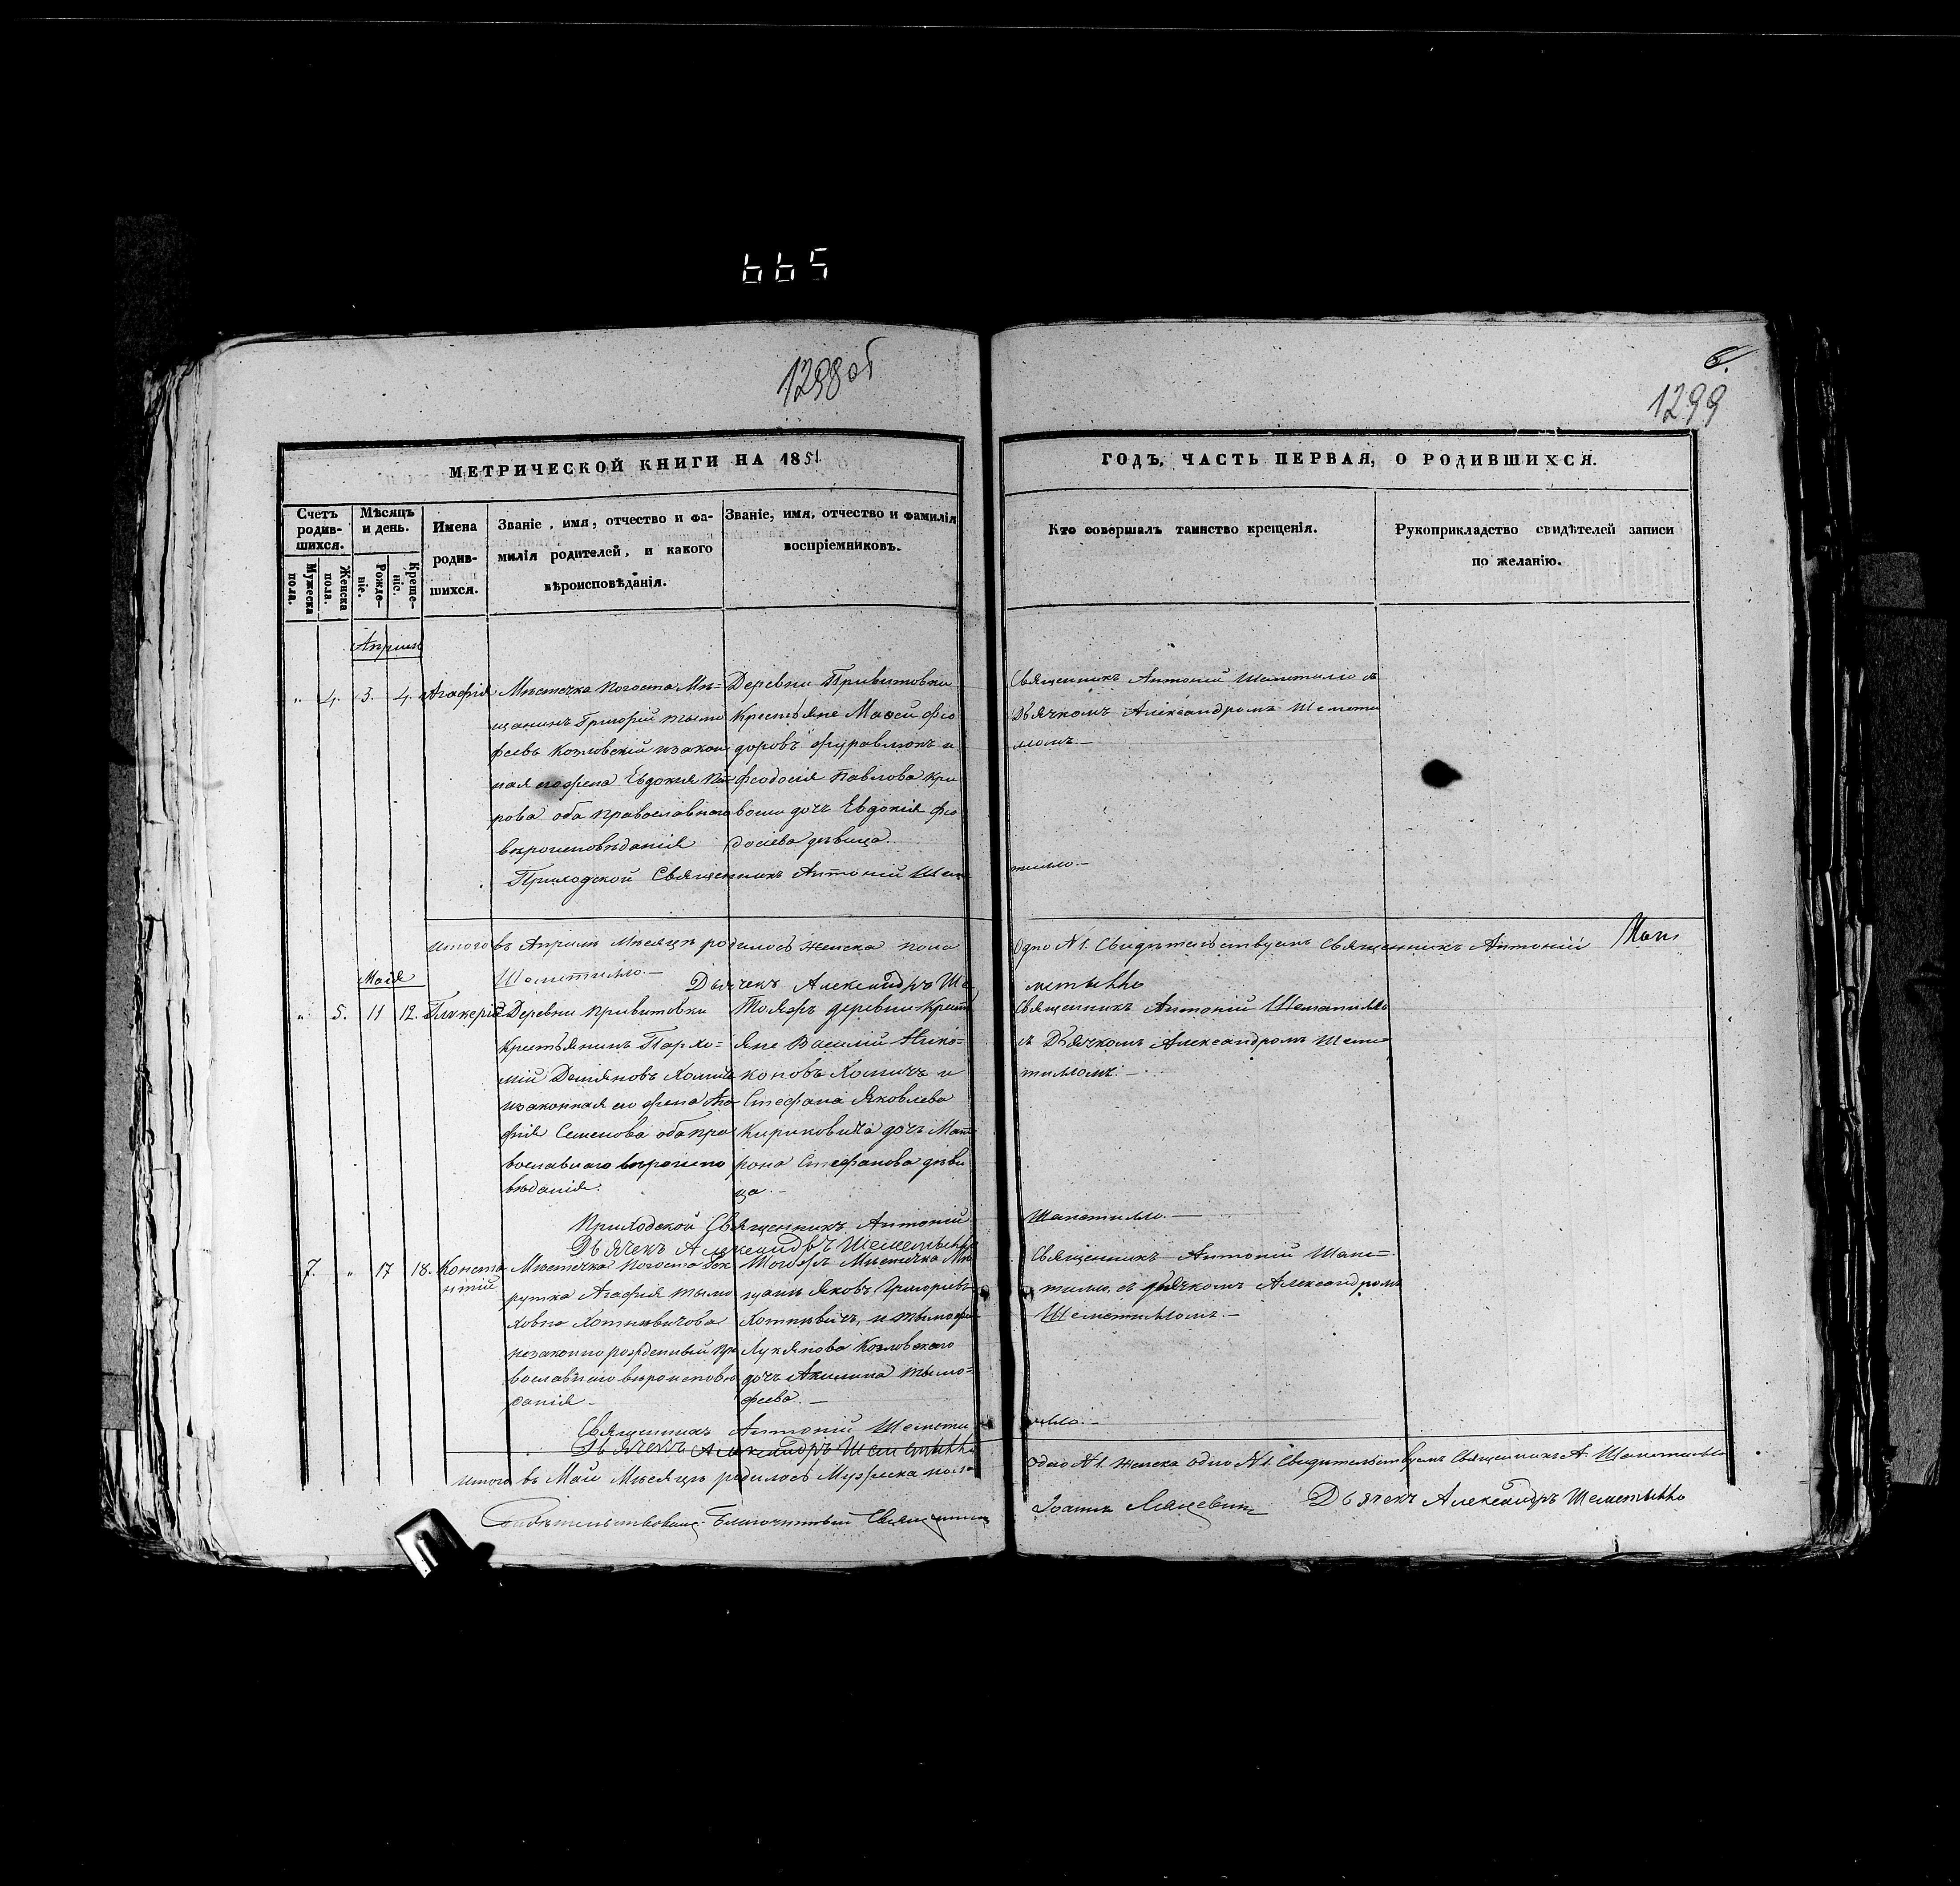 665
1298 об
6.
1299
МЕТРИЧЕСКОЙ КНИГИ НА 1851.
ГОДЪ, ЧАСТЬ ПЕРВАЯ, О РОДИВШИХСЯ.
Счетъ родив-шихся.
Мужеска пола.
Женска пола.
Мѣсяцъ и день.
Рожде-ніе.
Креще-ніе.
Имена
родив-
шихся.
Званіе, имя, отчество и фа-
милія родителей, и какого
вѣроисповѣданія.
Званіе, имя, отчество и фамилія
воспріемниковъ.
Кто совершалъ таинство крещенія.
Рукоприкладство свидѣтелей записи
по желанію.
Априля
„ 4. 3. 4. Агафія
Мѣстечка Погоста Мѣ=
щанинъ Григорій Тымо
феевъ Козловскій и закон
ная его жена Евдокія Пе
рова оба православнаго
вѣроисповѣданія
Деревни Привитовки
Крестьяне Мавсей Фео
доровъ Журавлюкъ и
Феодосія Павлова Кри
дочь Евдокія Фео
досіева дѣвица.
Священникъ Антоній Шеметилло съ
Дьячкомъ Александромъ Шемети
лломъ.—
Приходской Священникъ Антоній Шеме
тилло.—
Итого въ Априлѣ Мѣсяцѣ родилось женска пола
Одно №1. Свидѣтельствуемъ Священникъ Антоній
Шеметилло.—
Дьячекъ Александръ Ше
метылло
Маія
„ 5. 11 12. Гликерія
Деревни Привитовки
Крестьянинъ Пархо=
мій Демяновъ Хомичъ
и законная его жена Ага
фія Семенова оба пра
вославнаго вѣроиспо
вѣданія.
Тояжъ деревни Крест
яне Василій Нико=
новъ Хомичъ и
Стефана Яковлева
Кириковича дочь Мат
рона Стефанова дѣви
ца.—
Священникъ Антоній Шеметилло
съ Дьячкомъ Александромъ Шеме
тилломъ.—
Приходской Священникъ Антоній
Шеметилло.—
Дьячекъ Александръ Шеметылло
7. „ 17 18. Конста
нтій
Мѣстечка Погоста Рек
рутка Агафія Тымо
ховна Хоткевичова
незаконнорожденный пра
вославнаго вѣроисповѣ
данія—
Тогожъ Мѣстечка Мѣ
щане Яковъ Григорьевъ
Хоткевичъ, и Тымофея
Лукянова Козловскаго
дочь Акилина Тымо=
феева.—
Священникъ Антоній Шеме=
тилло, съ дьячкомъ Александромъ
Шеметилломъ.—
Священникъ Антоній Шемети
лло.—
Дьячекъ Александръ Шеметылло
Итого въ Маи Мѣсяцѣ родилось Мужеска пола
Одно №1. Женска одно №1. Свидѣтельствуемъ Священникъ А. Шеметилло
Дьячекъ Александръ Шеметылло
Свидѣтельствовалъ Благочинный Священникъ
Іоаннъ